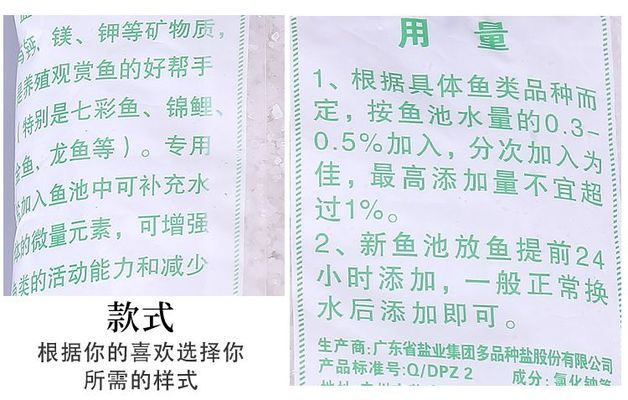 钙、镁、钾等矿物质,
是养殖观赏鱼的好帮手
(特别是七彩鱼、锦鲤、
金鱼、龙鱼等)。专用
加入鱼池中可补充水
体的微量元素,可增强
鱼类的活动能力和减少
款式
根据你的喜欢选择你
所需的样式
用 量
1、根据具体鱼类品种而
定,按鱼池水量的0.3-
0.5%加入,分次加入为
佳,最高添加量不宜超
过1%。
2、新鱼池放鱼提前24
小时添加,一般正常换
水后添加即可。
生产商:广东省盐业集团多品种盐股份有限公司
产品标准号:Q/DPZ 2 成分:氯化钠等